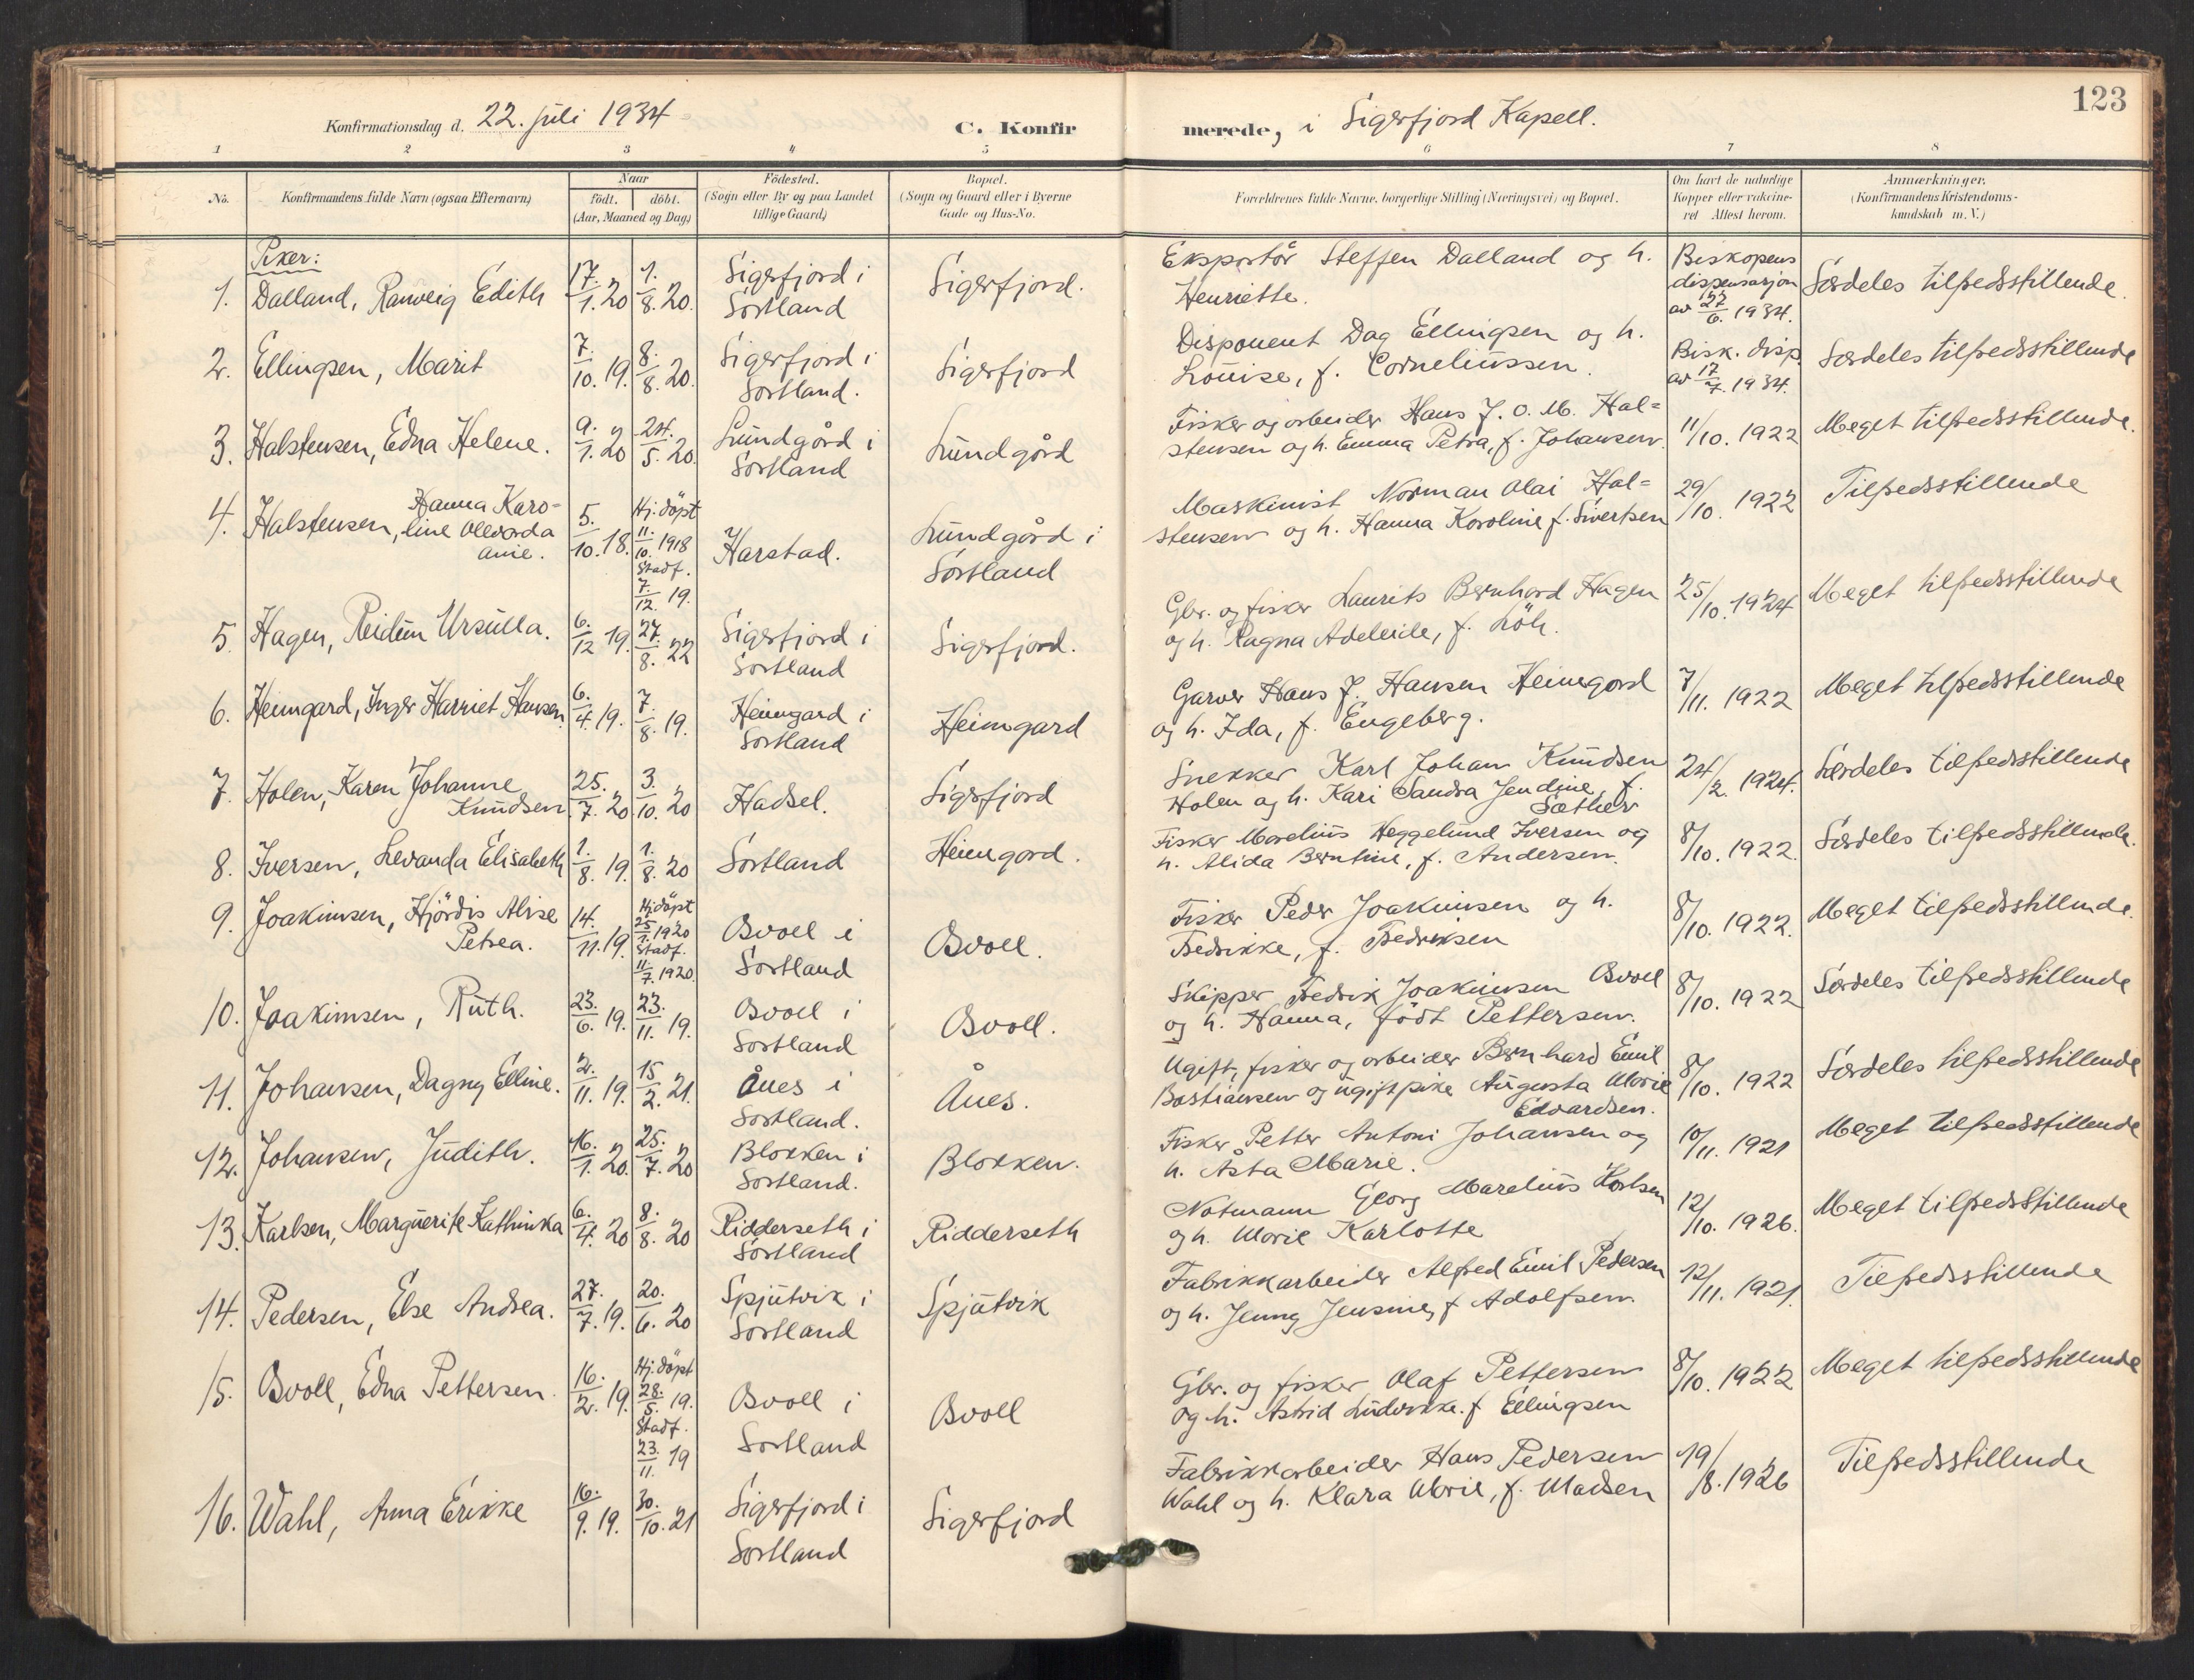 123
Konfirmationsdag d. 22. juli 1934 C. Konfirmerede, i Sigerfjord Kapell.
1 2 3 4 5 6 7 8
No. Konfirmandens fulde Navn (ogsaa Efternavn) Naar født. døbt. (Aar, Maaned og Dag) Fødested. (Sogn eller By og paa Landet tillige Gaard) Bopæl. (Sogn og Gaard eller i Byerne Gade og Hus-No. Forældrenes fulde Navne, borgerlige Stilling (Næringsvei) og Bopæl. Om havt de naturlige Kopper eller vakcineret Attest herom. Anmærkninger. (Konfirmandens Kristendomskundskab m. V.)
Piker:
1. Dalland, Ranveig Edith 17./1. 20 1./8. 20. Sigerfjord i Sortland Sigerfjord. Eksportør Steffen Dalland og h. Henriette. Biskopens dispensasjon av 27/6. 1934. Særdeles tilfredsstillende.
2. Ellingsen, Marit 7./10. 19. 8./8. 20. Sigerfjord i Sortland. Sigerfjord Disponent Dag Ellingsen og h. Louise, f. Corneliussen. Bisk. disp. av 17/7. 1934. Særdeles tilfredsstillende
3. Halstensen, Edna Helene. 9./1. 20 24./5. 20. Lundgård i Sortland Lundgård Fisker og arbeider Hans J. O. M. Halstensen og h. Emma Petra, f. Johansen. 11/10. 1922 Meget tilfredsstillende.
4. Halstensen, Hanna Karoline Allvarda Anie. 5./10. 18. Hj. döpt 11./10. 1918 Stadf. 7./12. 19. Harstad. Lundgård i Sortland Maskinist Norman Olai Halstensen og h. Hanna Karoline f. Sivertsen 29/10. 1922 Tilfredsstillende
5. Hagen, Reidun Ursulla. 6./12 19. 27./8. 22 Sigerfjord i Sortland Sigerfjord. Gbr. og fisker Laurits Bernhard Hagen og h. Ragna Adeleide, f. Löh. 25/10. 1924 Meget tilfredsstillende
6. Heimgard, Inger Harriet Hansen 6./4. 19. 7./8. 19. Heimgard i Sortland Heimgard Garver Hans J. Hansen Heimgard og h. Ida, f. Engeberg. 7/11. 1922 Meget tilfredsstillende
7. Holen, Karen Johanne Knudsen 25./7. 20. 3./10. 20 Hadsel. Sigerfjord Snekker Karl Johan Knudsen Holen og h. Kari Sandra Jendine, f. Sæther 24/2. 1924. Særdeles tilfredsstillende
8. Iversen, Levanda Elisabeth 1./8. 19. 1./8. 20 Sortland Heimgard. Fisker Marelius Heggelund Iversen og h. Alida Berntine, f. Andersen. 8/10. 1922. Særdeles tilfredsstillende.
9. Joakimsen, Hjördis Alise Petrea. 14./11. 19. Hj. döpt 25/1. 1920 Stadf. 11./7. 1920 Osvoll i Sortland Osvoll. Fisker Peder Joakimsen og h. Fredrikke, f. Fredriksen 8/10. 1922. Meget tilfredsstillende.
10. Joakimsen, Ruth. 23./6. 19. 23./11. 19. Osvoll i Sortland Osvoll. Skipper Fredrik Joakimsen Osvoll og h. Hanna, født Pettersen. 8/10. 1922 Særdeles tilfredsstillende
11. Johansen, Dagny Elline. 2./11. 19. 15/2. 21. Ånes i Sortland. Ånes. Ugift, fisker og arbeider Bernhard Emil Bastiansen og ugift pike Augusta Marie Edvardsen. 8/10. 1922 Særdeles tilfredsstillende
12. Johansen, Judith. 16./1. 20. 25./7. 20 Blokken i Sortland. Blokken. Fisker Petter Antoni Johansen og h. Åsta Marie. 10/11. 1921 Meget tilfredsstillende
13. Karlsen, Marguerite Kathinka 6./4. 20 8./8. 20 Ridderseth i Sortland Ridderseth Notmann Georg Marelius Karlsen og h. Marie Karlotte 12/10. 1926. Meget tilfredsstillende
14. Pedersen, Else Andrea. 27./7. 19. 20./6. 20 Spjutvik i Sortland Spjutvik Fabrikkarbeider Alfred Emil Pedersen og h. Jenny Jensine, f Adolfsen. 12/11. 1921. Tilfredsstillende
15. Osvoll, Edna Pettersen. 16./2. 19. Hj. döpt 28./5. 19. Stadf. 23./11. 19 Osvoll i Sortland Osvoll Gbr. og fisker Olaf Pettersen og h. Astrid Ludvikke. f Ellingsen 8/10. 1922 Meget tilfredsstillende
16. Wahl, Anna Erikke 16./9. 19. 30./10. 21 Sigerfjord i Sortland Sigerfjord Fabrikkarbeider Hans Pedersen Wahl og h. Klara Marie, f. Madsen 19/8. 1926 Tilfredsstillende